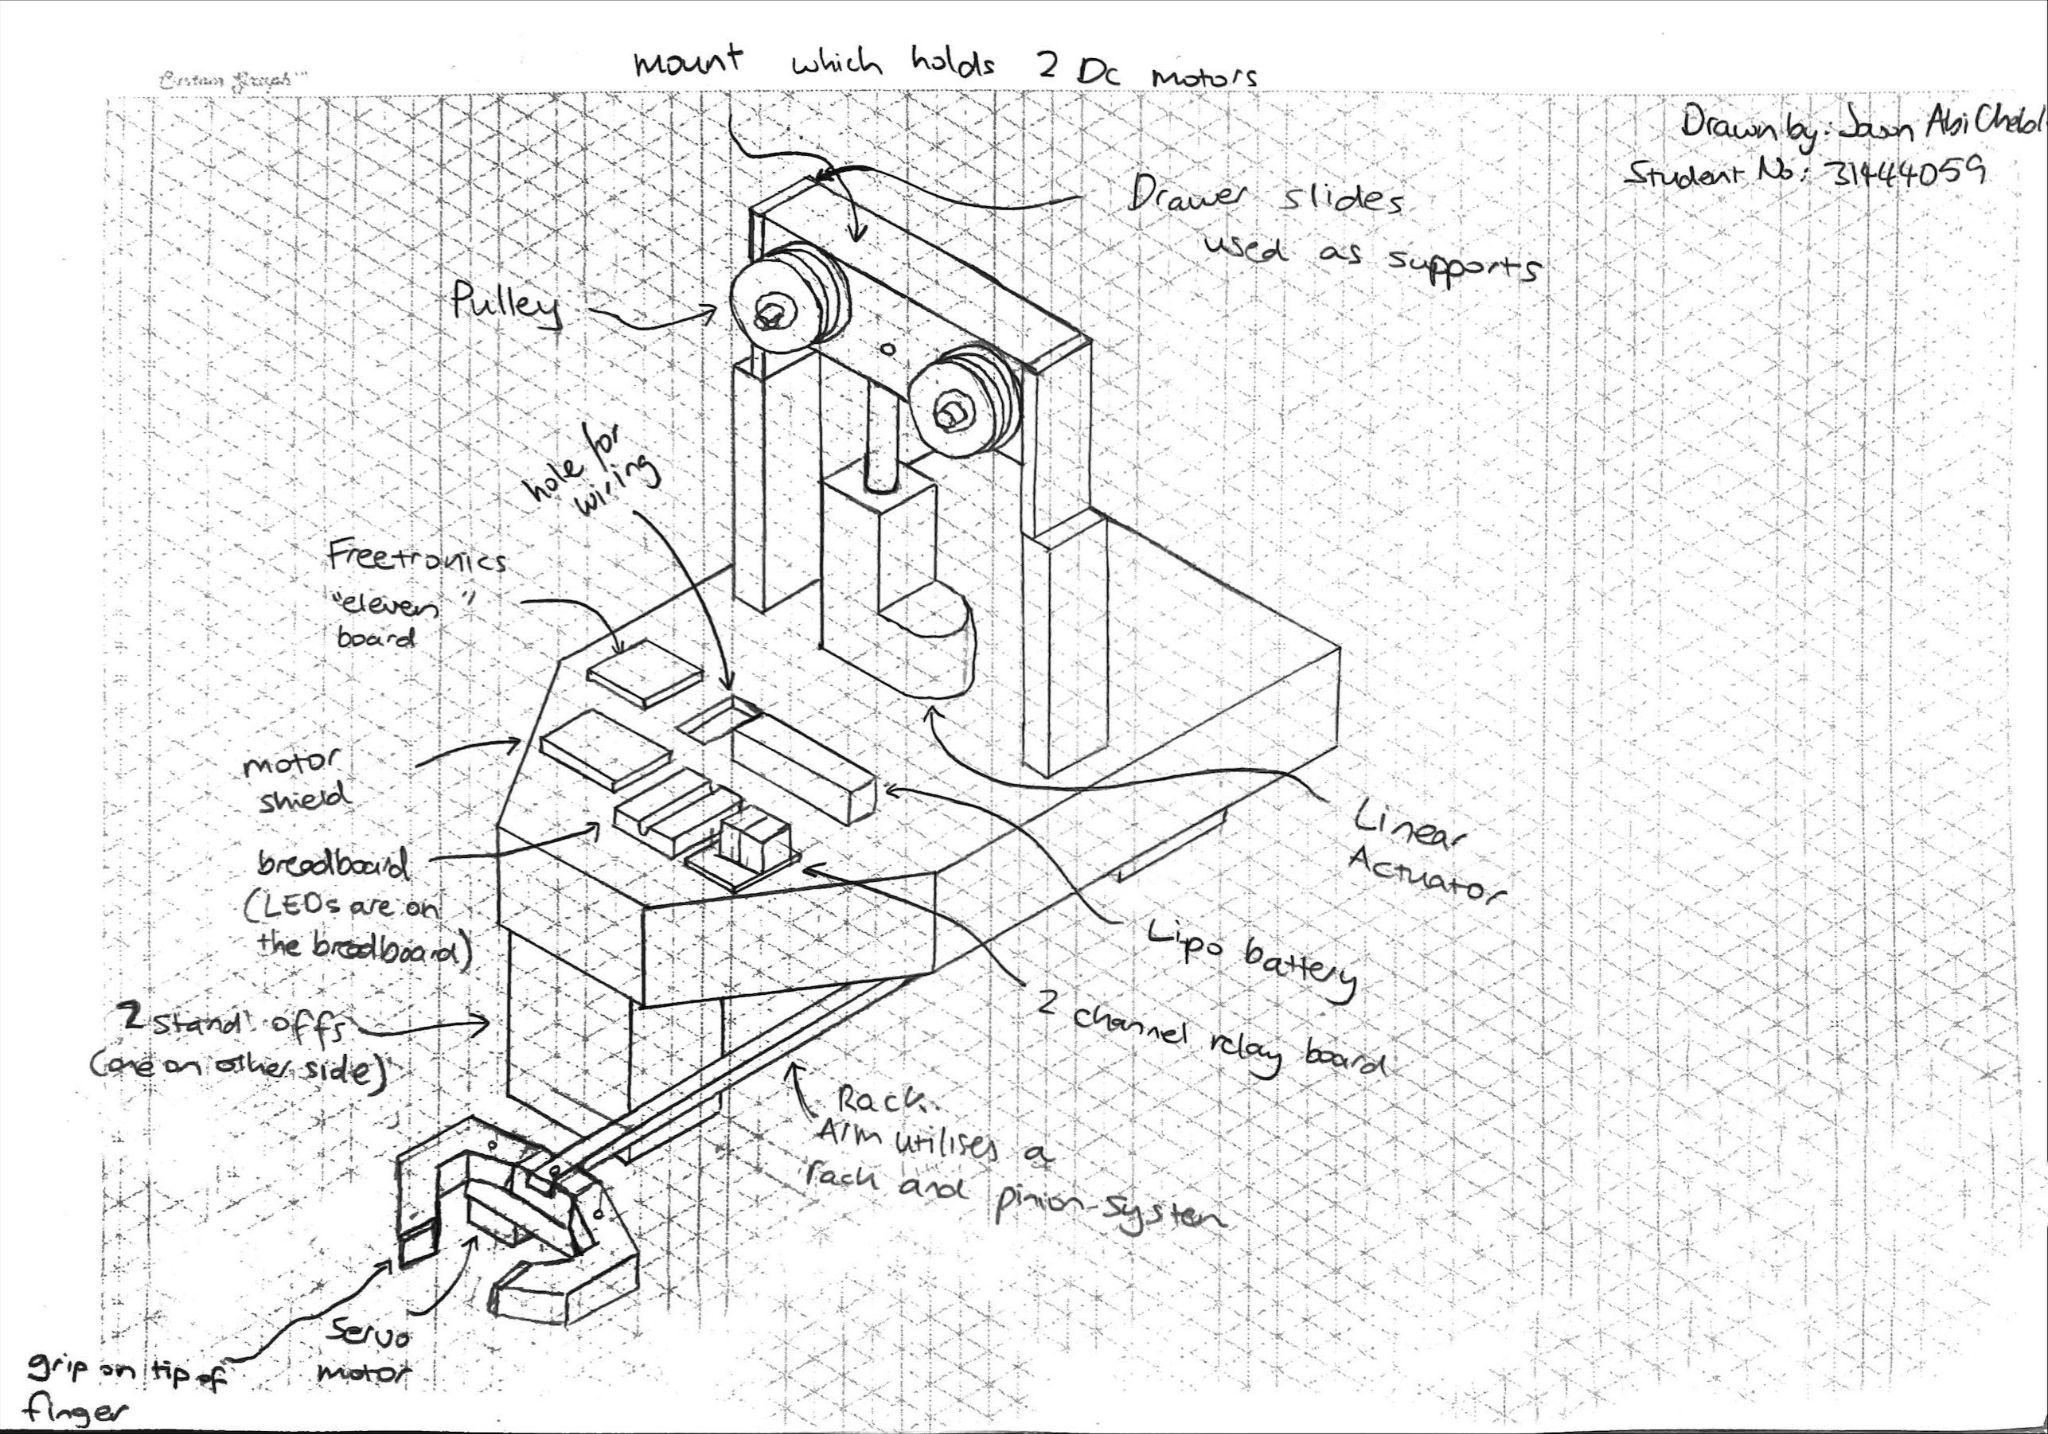 mount which holds 2 DC motors
Drawn by: Jason Abi Chebl
Student No: 31444059
Drawer slides
used as supports
Pulley
hole for
wiring
Freetronics
"eleven"
board
motor
shield
breadboard
(LEDs are on
the breadboard)
2 stand offs
(one on other side)
Linear
Actuator
Lipo battery
2 channel relay board
Rack.
Arm utilises a
rack and pinion system
Servo
motor
grip on tip of
finger